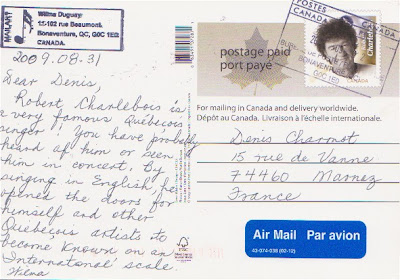 MAILART
Wilma Duguay
11-102 rue Beaumont,
Bonaventure, QC, G0C 1E0
CANADA.
2009.08.31
Dear Denis,
Robert Charlebois is
a very famous Québécois
singer! You have probably
heard of him or seen
him in concert. By
singing in English, he
opened the doors for
himself and other
Québecois artists to
become known on an
International scale.
Wilma
postage paid
port payé
POSTES
CANADA
BONAVENTURE
G0C 1E0
CANADA
Charlebois
CANADA
For mailing in Canada and delivery worldwide.
Dépôt au Canada. Livraison à l'échelle internationale.
Denis Charmot
15 rue de Vanne
74460 Marnaz
France
FSC
Air Mail Par avion
43-074-038 (02-12)